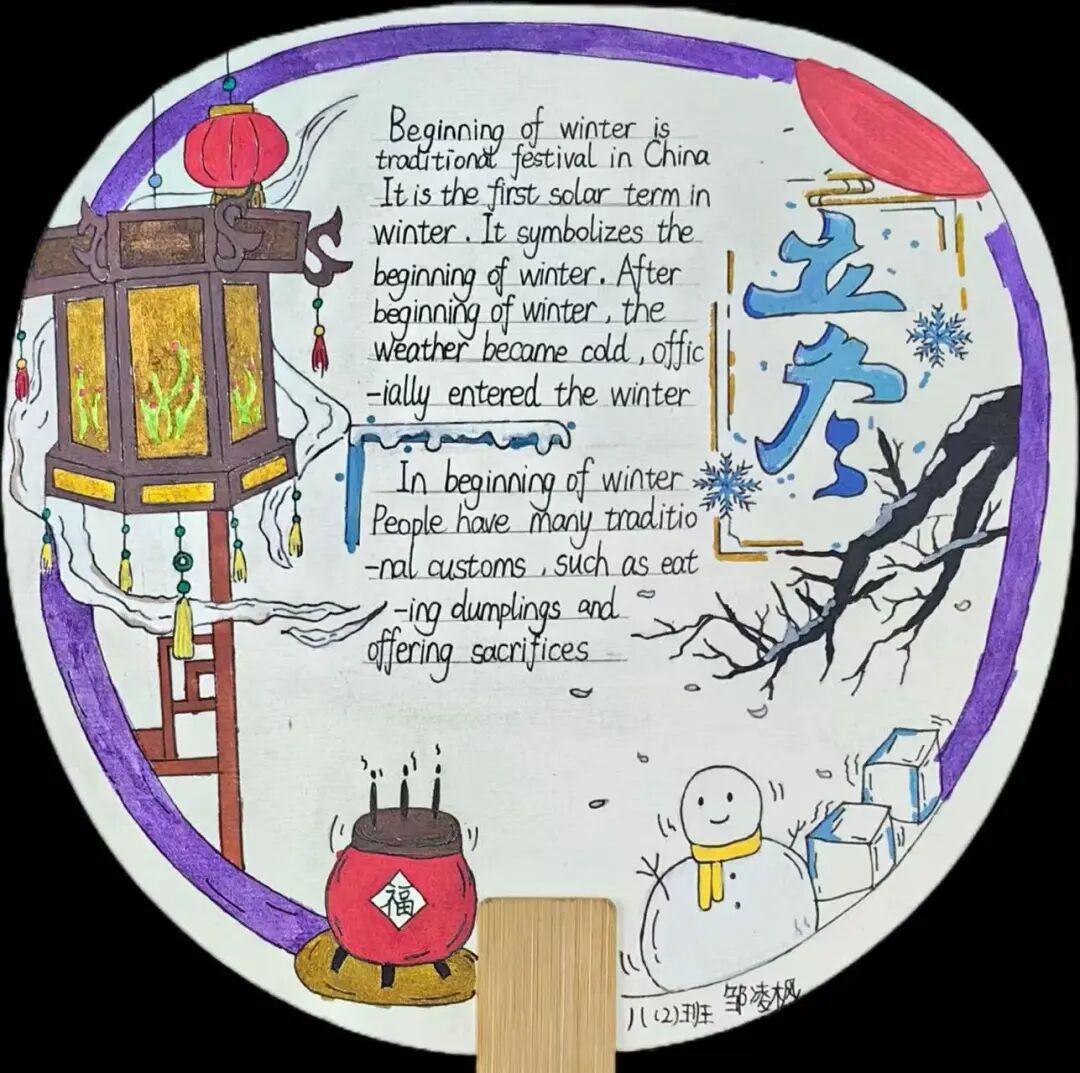 Beginning of winter is
traditional festival in China
It is the first solar term in
winter. It symbolizes the
beginning of winter. After
beginning of winter, the
weather became cold, offic
-ially entered the winter
In beginning of winter
People have many traditio
-nal customs, such as eat
-ing dumplings and
offering sacrifices
立冬
福
八(2)班 邹凌枫